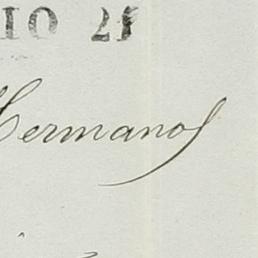 IO 21
Hermanos